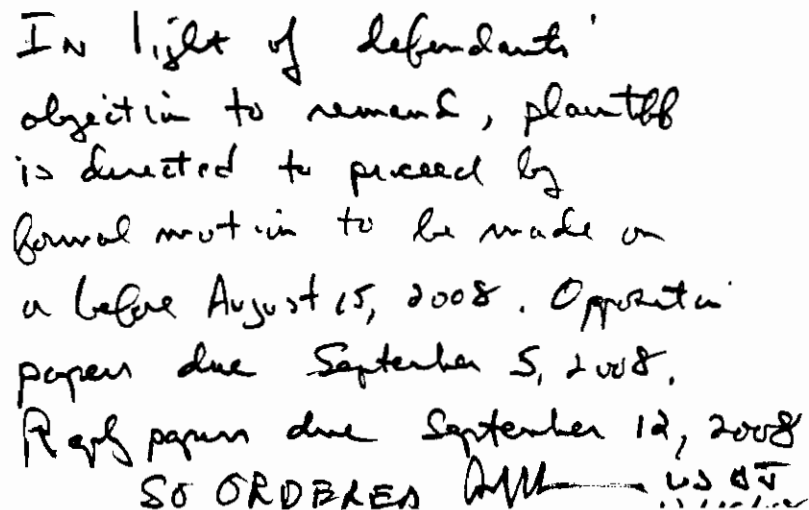 IN light of defendants'
objection to remand, plaintiff
is directed to proceed by
formal motion to be made on
or before August 15, 2008. Opposition
papers due September 5, 2008.
Reply papers due September 12, 2008
SO ORDERED USDJ